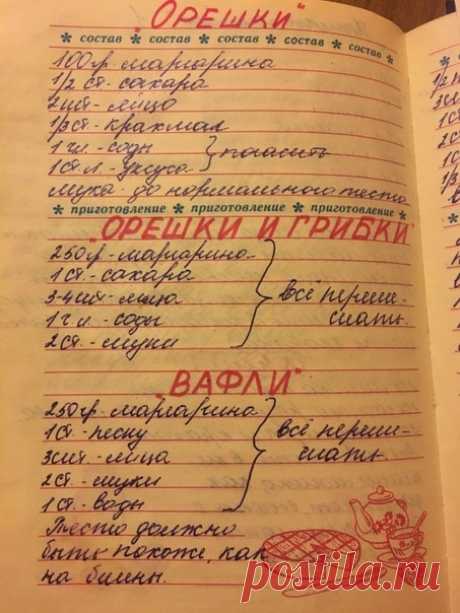 "ОРЕШКИ"
* состав * состав * состав * состав * состав *
100 гр. маргарина
1/2 ст. сахара
2 шт. - яйцо
1/3 ст. - крахмал
1 ч л. - соды } погасить
1 ст. л. - уксуса
мука - до нормального теста
* приготовление * приготовление * приготовление *
"ОРЕШКИ И ГРИБКИ"
250 гр. - маргарина
1 ст. - сахара
3-4 шт. - яйца } всё переме-
1 ч л. - соды шать.
2 ст. - муки
"ВАФЛИ"
250 гр. - маргарина
1 ст. - песку } всё переме-
3 шт. - яйца шать.
2 ст. - муки
1 ст. - воды
Тесто должно
быть похоже, как
на блины.
postila.ru